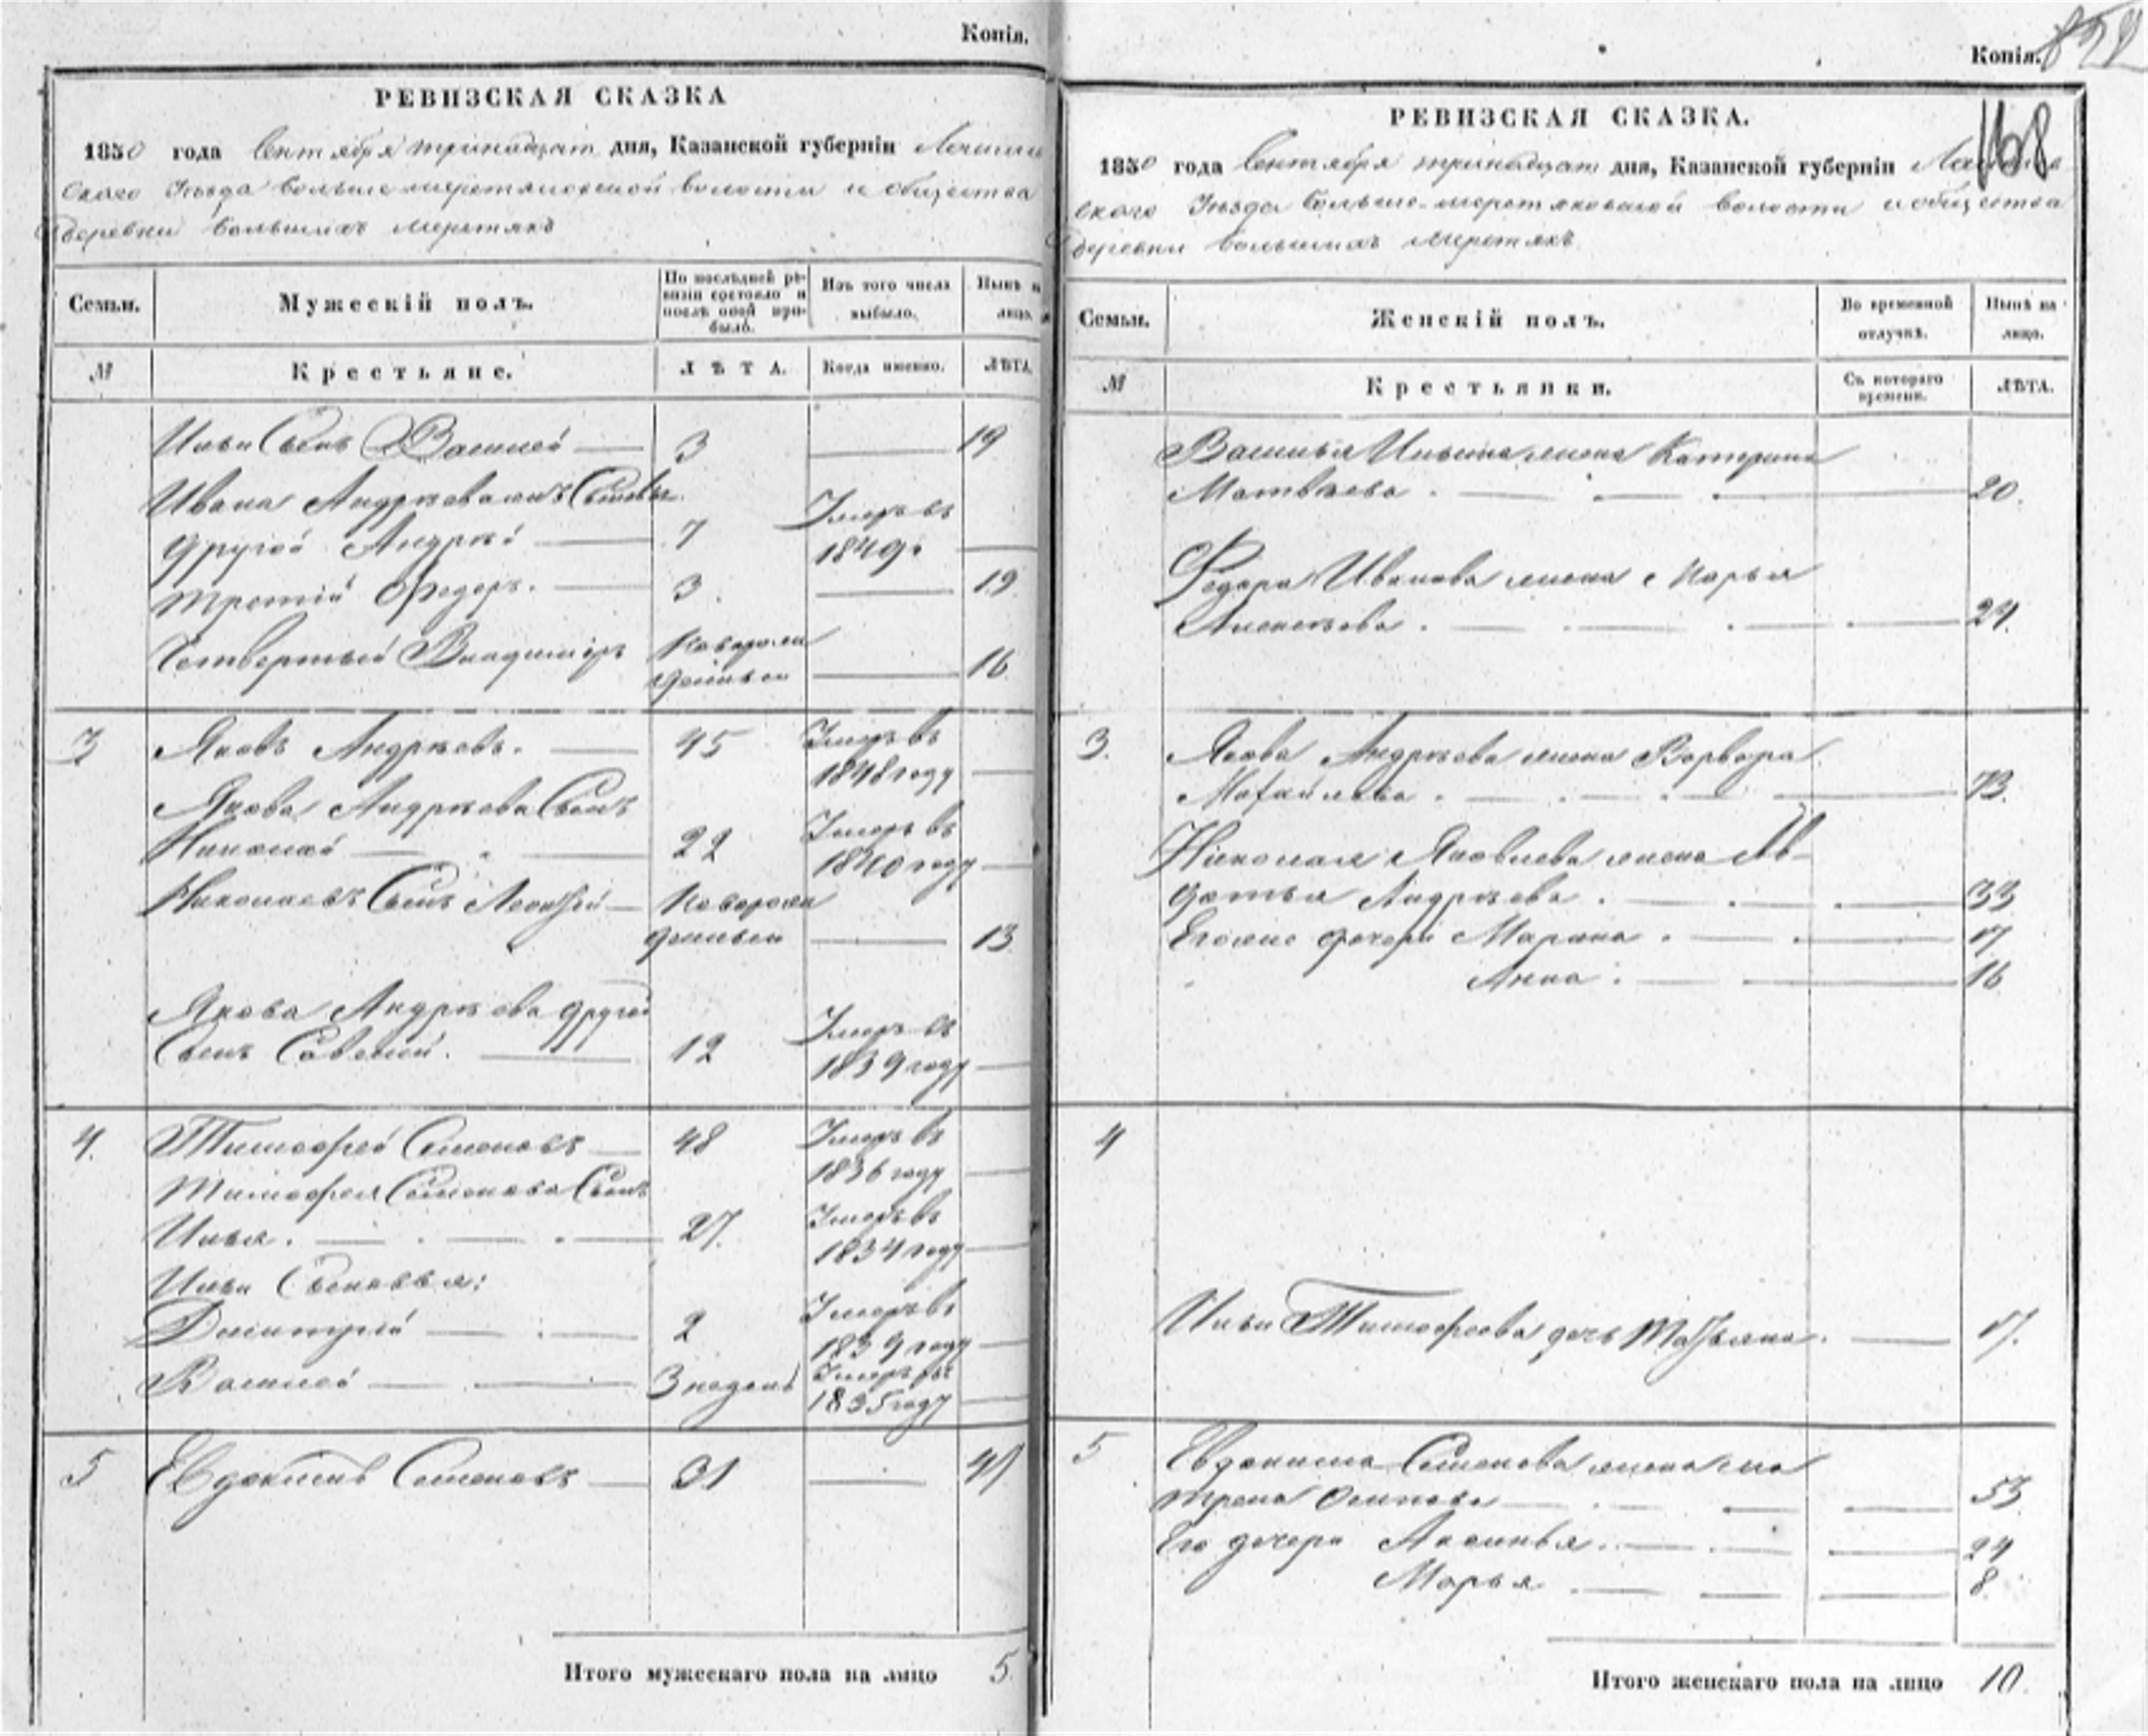 Копія.
РЕВИЗСКАЯ СКАЗКА
1850 года Сентября тринадцат дня, Казанской губерніи Лаишев
скаго Уезда Больше меретяковской волости и общества
деревни Большихъ Меретякъ
Семьи.
Мужескій полъ.
По послѣдней ре-
визіи состояло и
послѣ оной при-
было.
Изъ того числа
выбыло.
Нынѣ на
лицо.
№
Крестьяне.
ЛѢТА.
Когда именно.
ЛѢТА.
Ильи Сынъ Василей 3 19
Ивана Андрѣева
другой Андрѣй 7 Умеръ въ 1849.
третій Федоръ. 3. 19
Четвертый Владимиръ Новорож
денный 16
3 Яковъ Андрѣевъ. 45 Умеръ въ
1848 году
Якова Андрѣева Сынъ
Николай 22 Умеръ въ
1840 году
Николаевъ Сынъ Новорож
денный 13
Якова Андрѣева другой
Сынъ Савелий. 12 Умеръ въ
1839 году
4. Тимофей Семеновъ 48 Умеръ въ
1836 году
Тимофея Семенова Сынъ
Илья. 27. Умеръ въ
1834 году
Ильи Сыновья:
Дмитрій 2 Умеръ въ
1839 году
Василей 3 недель Умеръ въ
1835 году
5 Евдокимъ Семеновъ 31 47
Итого мужескаго пола на лицо 5.
Копія.
168
РЕВИЗСКАЯ СКАЗКА.
1850 года Сентября тринадцат дня, Казанской губерніи
скаго Уезда Больше-меретяковской волости и общества
деревни Большихъ Меретякъ
Семьи.
Женскій полъ.
Во временной
отлучкѣ.
Нынѣ на
лицо.
№
Крестьянки.
Съ котораго
времени.
ЛѢТА.
Василья Ильина жена Катерина
Матвѣева. 20.
Федора Иванова жена Марья
Алексѣева. 24.
3. Якова Андрѣева жена Варвара
Михайлова. 73.
Николая Яковлева жена Ав-
дотья Андрѣева. 33
Егоже дочери Марина. 17
Анна. 16
4
Ильи Тимофеева дочь Татьяна. 17.
5 Евдокима Семенова жена Ма
трена Осипова 53
Его дочери Аксинья. 24
Марья 8.
Итого женскаго пола на лицо 10.